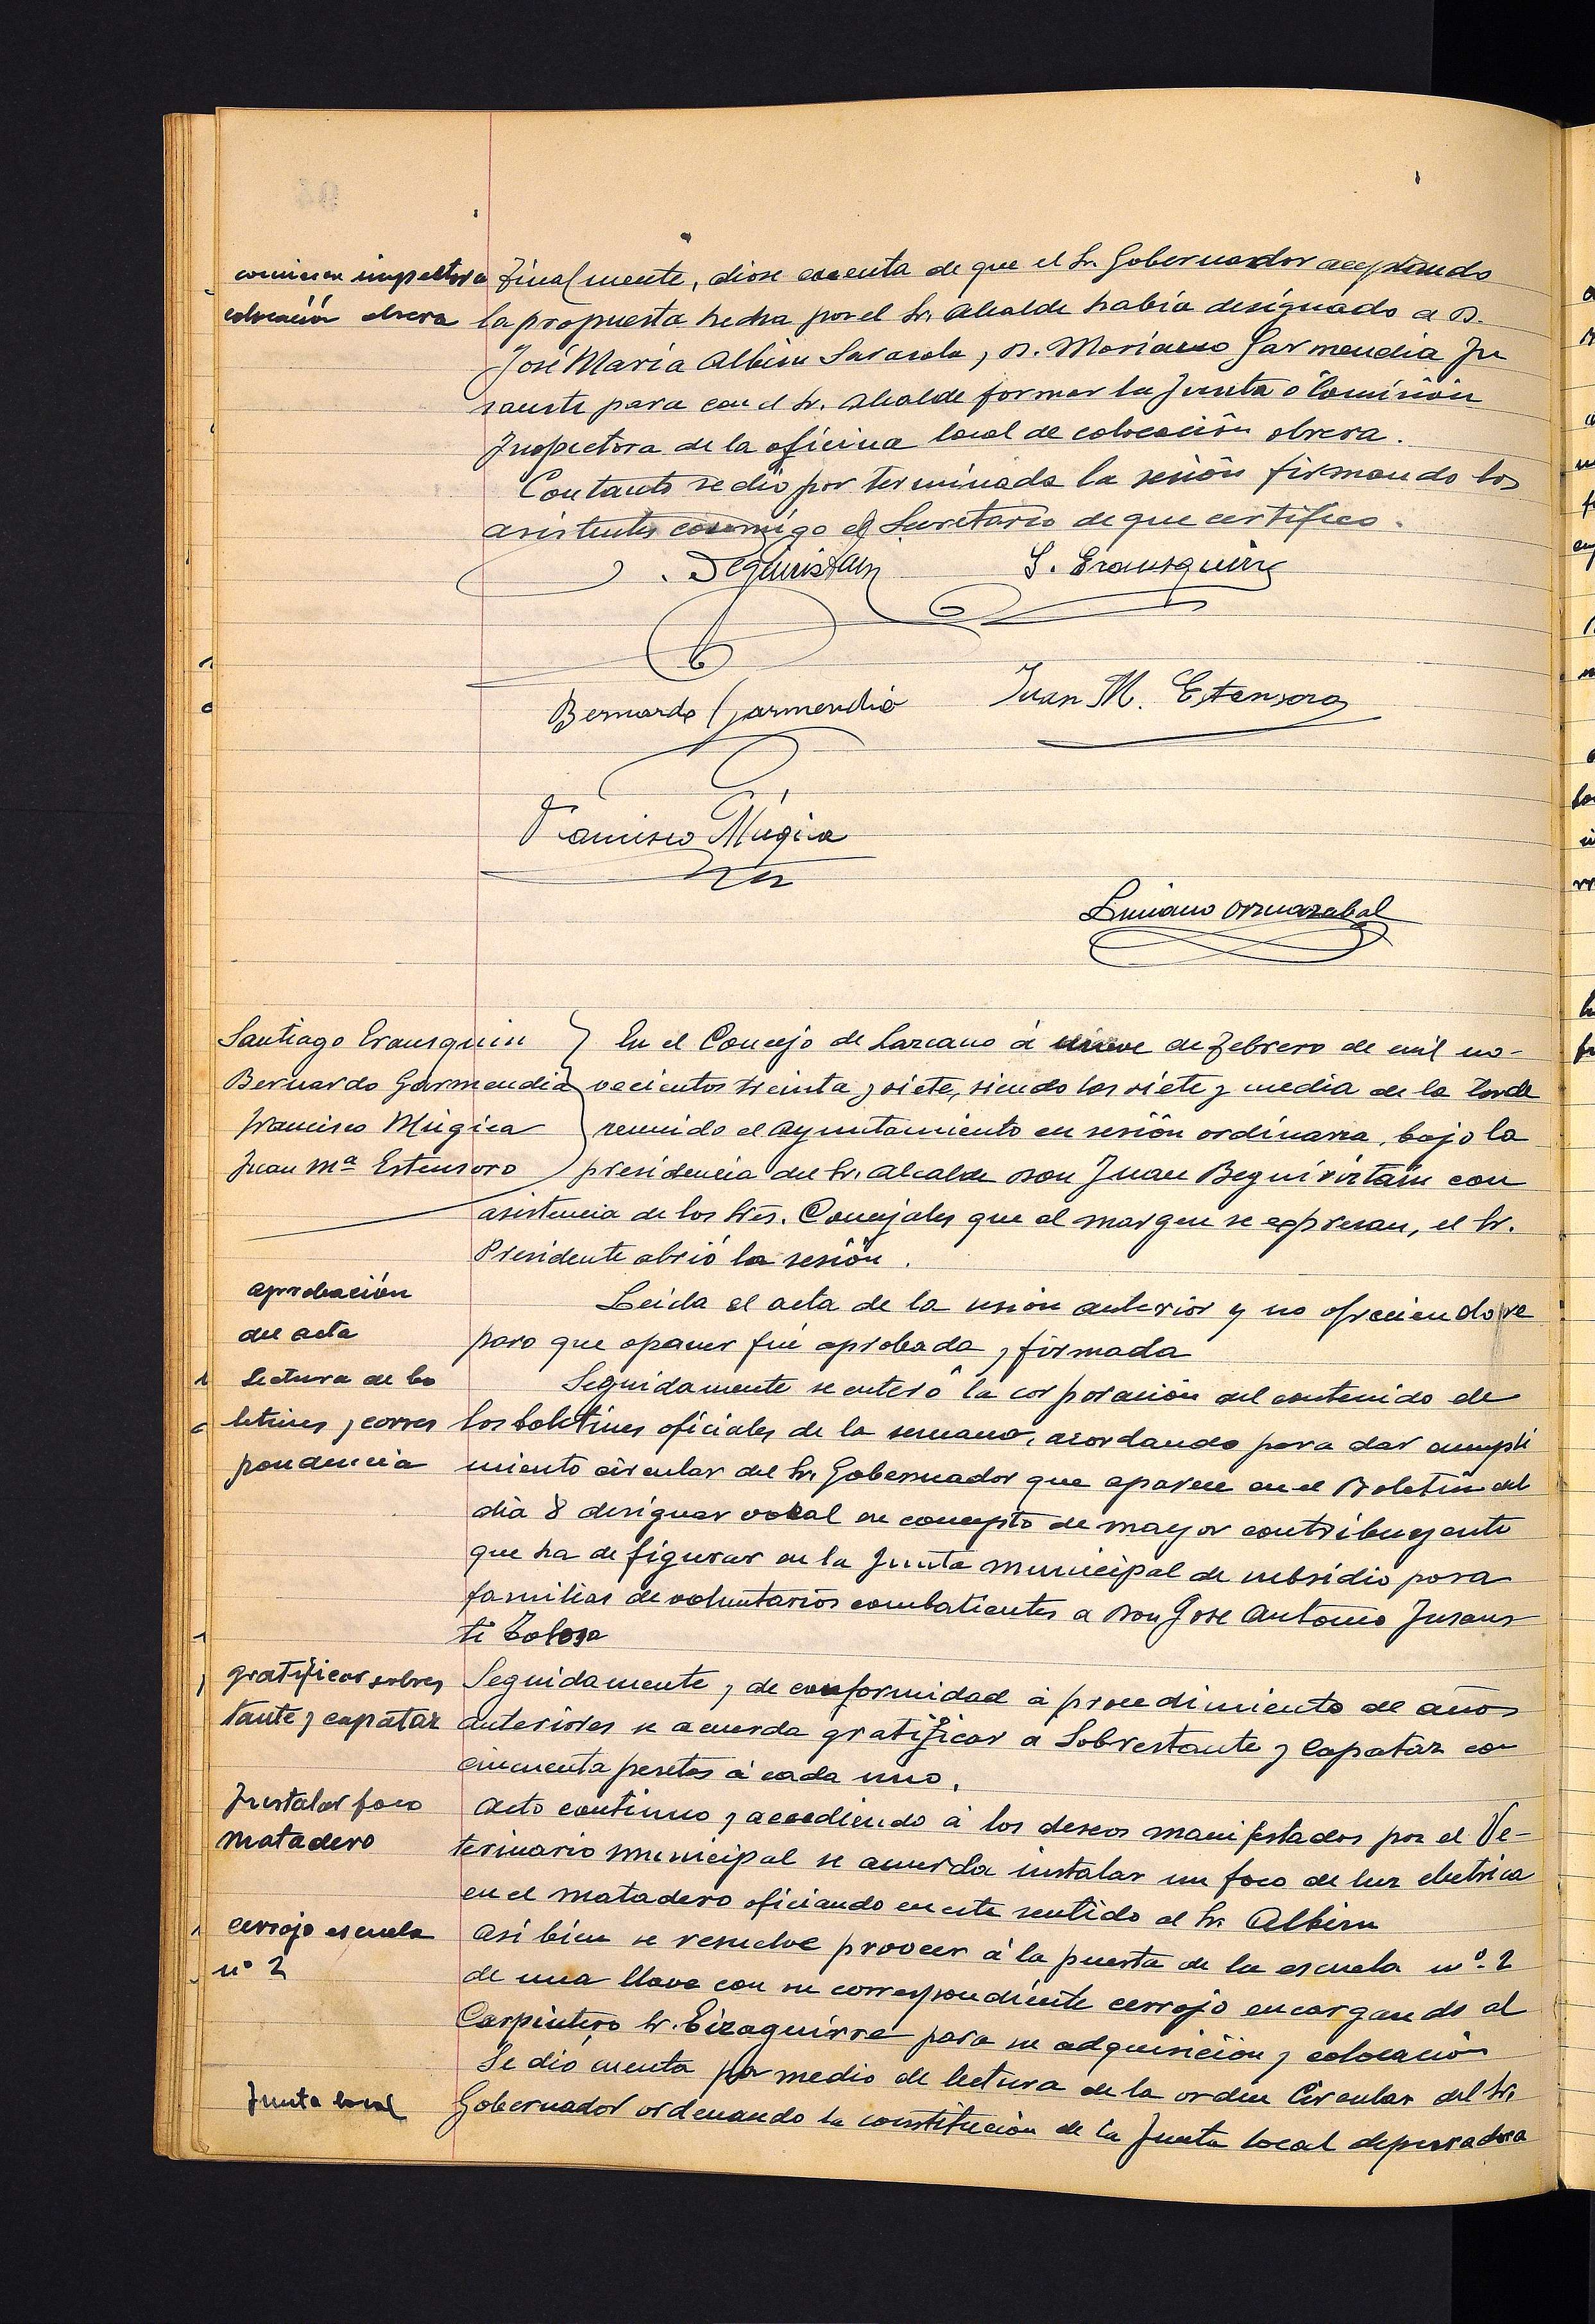 comision inspectora
colocación obrera
Finalmente, dióse cuenta de que el Sr. Gobernador aceptando
la propuesta hecha por el Sr. Alcalde había designado a D.
José María Albisu Sarasola, D. Mariano Garmendia In
sausti para con el Sr. Alcalde formar la Junta o Comisión
Inspectora de la oficina local de colocación obrera.
Con tanto se dió por terminada la sesión firmando los
asistentes conmigo el Secretario de que certifico.
S. Erausquin
Bernardo Garmendia
Juan M. Estensoro
Francisco Múgica
Luciano Ormazabal
Santiago Erausquin
Bernardo Garmendia
Francisco Múgica
Juan Mª Estensoro
En el Concejo de Lazcano á nueve de Febrero de mil no-
vecientos treinta y siete, siendo las siete y media de la tarde
reunido el Ayuntamiento en sesión ordinaria, bajo la
presidencia del Sr. Alcalde Don Juan Beguiristain con
asistencia de los Sres. Concejales que al margen se expresan, el Sr.
Presidente abrió la sesión.
aprobación
del acta
Leida el acta de la sesión anterior y no ofreciendo re
paro que oponer fué aprobada y firmada
Lectura de bo
letines y corres
pondencia
Seguidamente se enteró la corporación del contenido de
los boletines oficiales de la semana, acordando para dar cumpli
miento circular del Sr. Gobernador que aparece en el Boletín del
día 8 designar vocal en concepto de mayor contribuyente
que ha de figurar en la Junta municipal de subsidio para
familias de voluntarios combatientes a Don Jose Antonio Insaus
ti Tolosa
gratificar sobres
tante y capataz
Seguidamente y de conformidad á procedimiento de años
anteriores se acuerda gratificar a Sobrestante y Capataz con
cincuenta pesetas á cada uno.
Instalar foco
matadero
Acto continuo y accediendo á los deseos manifestados por el Ve-
terinario municipal se acuerda instalar un foco de luz electrica
en el matadero oficiando en este sentido al Sr. Albisu
cerrojo escuela
nº 2
Asi bien se resuelve proveer á la puerta de la escuela nº. 2
de una llave con su correspondiente cerrojo encargando al
Carpintero Sr. Eizaguirre para su adquisición y colocación
Junta local
Se dió cuenta por medio de lectura de la orden Circular del Sr.
Gobernador ordenando la constitución de la Junta local depuradora